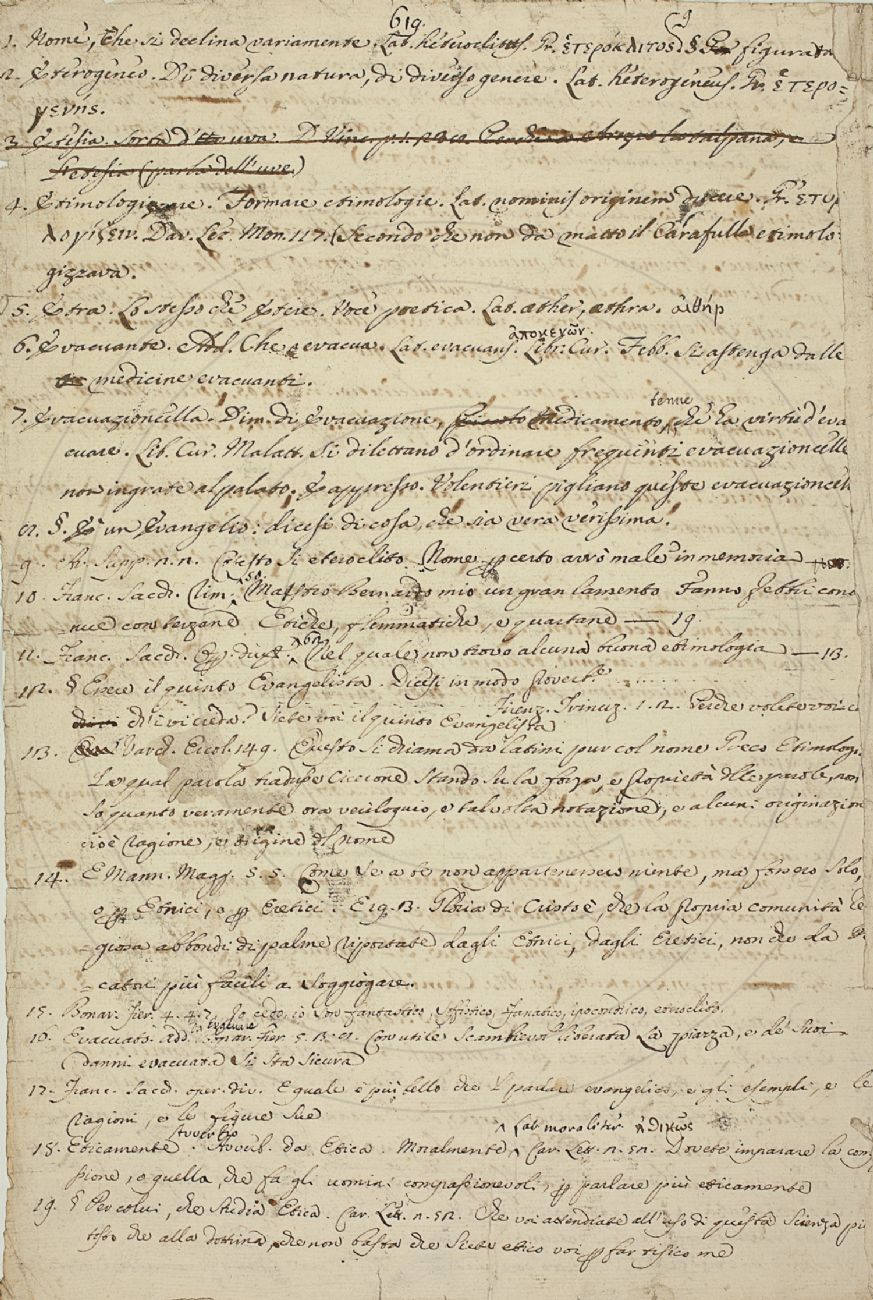 619.
1. Nome, che si declina variamente. Lat. heteroclitus. Gr. ἑτερόκλιτος § figurata
2. Eterogeneo. Di diversa natura, di diverso genere. Lat. heterogeneus. Gr. ἑτερο=
γενης.
3. Etesia. Sorta d' uva.
(parla dell'uve)
4. Etimologizzare. Formare etimologie. Lat. nominis originem ducere. Gr. ετυμ
λογίζειν. Dav. Lez. Mon. 117. (Secondo che non da matto il Carafulla etimolo
gizzava.
5. Etra. Lo stesso che Etere. Voce poetica. Lat. æther, æthra. ἀιθήρ
ἀποκενῶν.
6. Evacuante. Add. Che evacua. Lat. evacuans. Libr. Cur. Febb. Si astenga dalle
medicine evacuanti.
tenue
7. Evacuazioncella. Dim. di Evacuazione, medicamento, che ha virtù d'eva
cuare. Lib. Cur. Malatt. Si dilettano d'ordinare frequenti evacuazioncelle
non ingrate al palato. E appresso. Volentieri pigliano queste evacuazioncell
§. E' un Evangelio: dicesi di cosa, che sia vera verissima.
9. Supp. n. n. Questo si eteroclito Nome certo avrò male in memoria
10. Franc. Sacch. Rim. 50 Maestro Bernardo mio un gran lamento Fanno Febbri conti
nue con terzane Etiche, flemmatiche, e quartane — 19.
11. Franc. Sacch. Op. div. Nel quale non trovo alcuna buona etimologia — 13.
12. § Ecce il quinto Evangelista. Dicesi in modo proverb.e
Firenz. Trinuz. 1. 2. Perche volete voi
ch'i vi creda? Siete voi il quinto Evangelista
13. Varch. Ercol. 149. Questo si chiama da Latini pur col nome Greco Etimologi
La qual parola tradusse Cicerone stando su la forza, e proprietà delle parole, non
so quanto veramente ora veriloquio, e talvolta notazione, e alcuni originazion
cioè ragione, e origine del nome
14. E Mann. Magg. 5. 5. Come se a te non appartenessero niente, ma fossero solo,
o per Etnici, o per Eretici. E 19. 13. Gloria di Cristo è, che la propria comunità
abbondi di palme riportate dagli Etnici, dagli Eretici, non che da
catori più facili a soggiogare.
15. Bonar. Fier. 4. 4. 7. Io cedo, io son fantastico, Soffistico, fanatico, ipocondrico, eteroclito.
da Evacuare
16. Evacuato. add. Bonar. Fier. 5. Con utile scambievol liberata La piazza, e de' suoi
danni evacuata Si sta sicura
17. Franc. Sacch. oper. div. E quale è più bello che 'l parlar evangelico, e gli esempli, e le
ragioni, e le figure sue
Avverbio
^ Lat. moraliter. ἠθικῶς
18. Eticamente. Avverb. da Etica. Moralmente Car. Lett. n. 52. Dovete imparare la com
pssione, o quella, che fa gli uomini compassionevoli, per parlare più eticamente
19. § Per colui, che studia Etica. Car. Lett. n. 52. Che voi attendiate all'uso di questa scienza più
tosto che alla dottrina, che non basta che siete etico voi per far tisico me